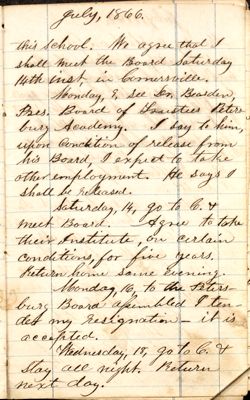 July, 1866.
this school. We agree that I
shall meet the Board Saturday
14th inst. in Cornersville.
Monday, 9, see Dr. Bearden,
Pres. Board of Trustees Peters-
burg Academy. I say to him,
upon condition of release from
his Board, I expect to take
other employment. He says I
shall be released.
Saturday, 14, go to C. &
meet Board. Agree to take
their Institute, on certain
conditions, for five years.
Return home same evening.
Monday, 16, to the Peters-
burg Board assembled I ten
der my resignation — it is
accepted.
Wednesday, 18, go to C. &
stay all night. Return
next day.